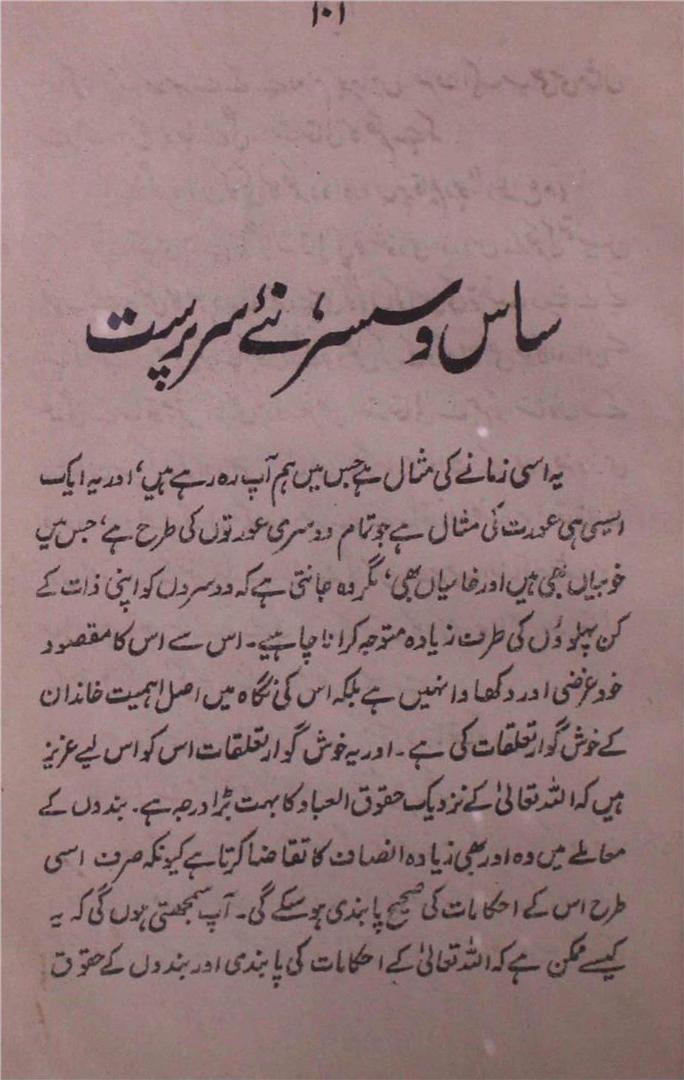 ۱۰۱
ساس و سسر، نئے سرپرست
یہ اسی زمانے کی مثال ہے جس میں ہم آپ رہ رہے ہیں، اور یہ ایک
ایسی ہی عورت کی مثال ہے جو تمام دوسری عورتوں کی طرح ہے، جس میں
خوبیاں بھی ہیں اور خامیاں بھی، مگر وہ جانتی ہے کہ دوسروں کو اپنی ذات کے
کن پہلوؤں کی طرف زیادہ متوجہ کرانا چاہیے۔ اس سے اس کا مقصود
خود غرضی اور دکھاوا نہیں ہے بلکہ اس کی نگاہ میں اصل اہمیت خاندان
کے خوش گوار تعلقات کی ہے۔ اور یہ خوش گوار تعلقات اس کو اس لیے عزیز
ہیں کہ اللہ تعالیٰ کے نزدیک حقوق العباد کا بہت بڑا درجہ ہے۔ بندوں کے
معاملے میں وہ اور بھی زیادہ انصاف کا تقاضا کرتا ہے کیونکہ صرف اسی
طرح اس کے احکامات کی صحیح پابندی ہو سکے گی۔ آپ سمجھتی ہوں گی کہ یہ
کیسے ممکن ہے کہ اللہ تعالیٰ کے احکامات کی پابندی اور بندوں کے حقوق